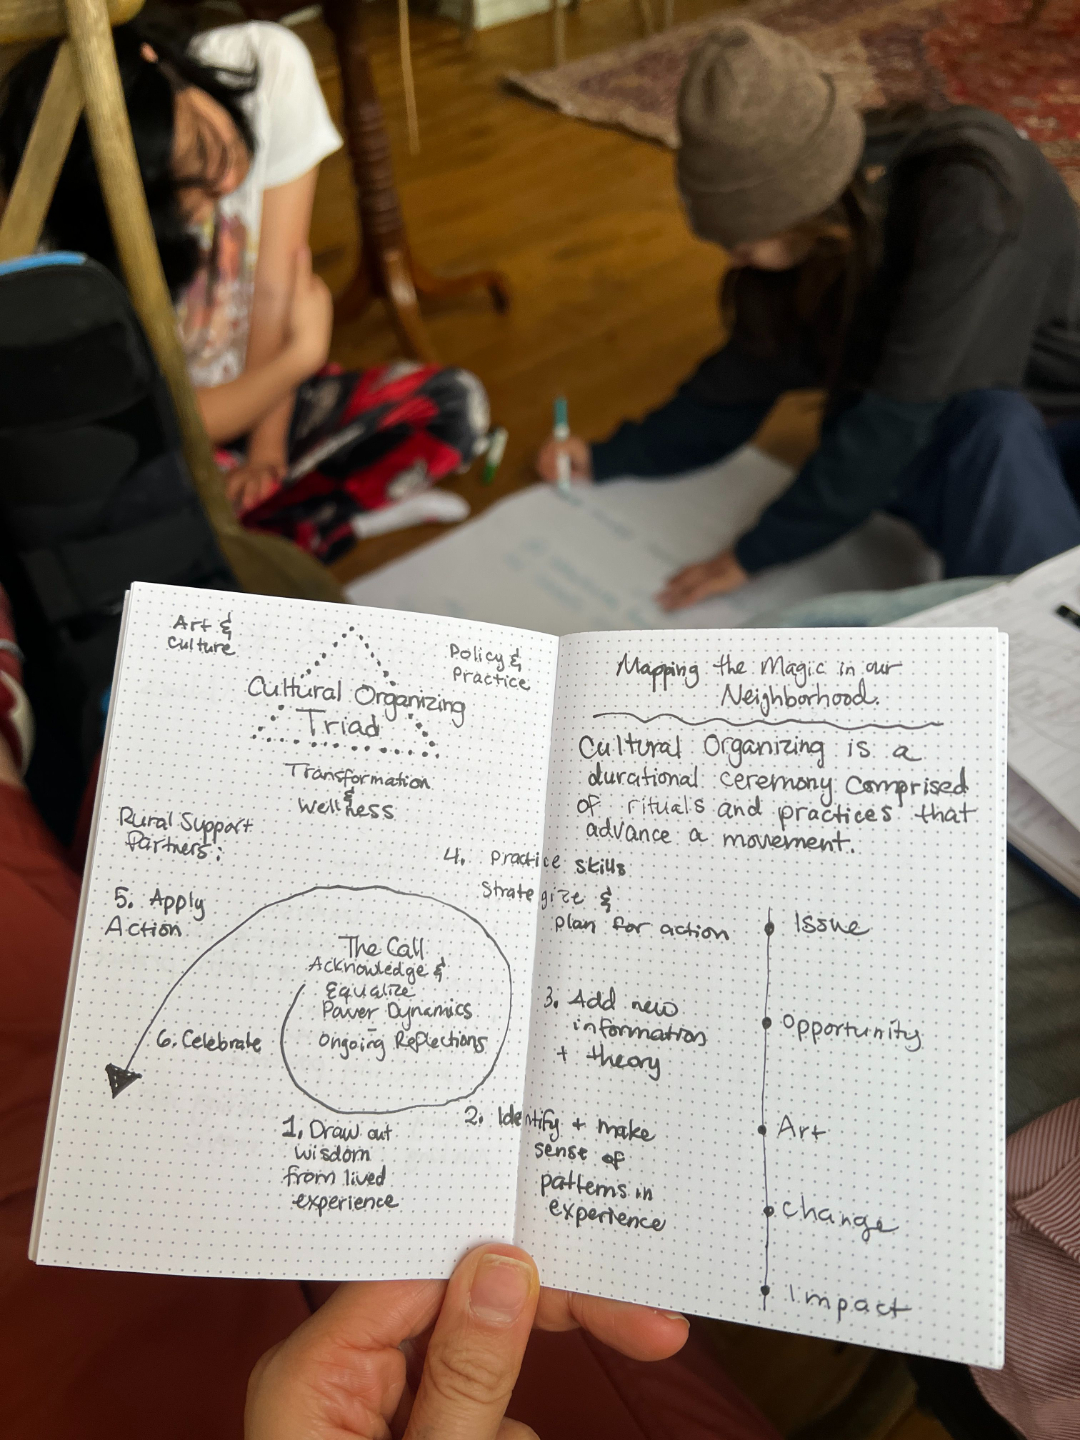 Art &
Culture
Policy &
Practice
Cultural Organizing
Triad
Transformation
&
Wellness
Rural Support
Partners:
5. Apply
Action
The Call
Acknowledge &
Equalize
Power Dynamics
Ongoing Reflections
6. Celebrate
1. Draw out
wisdom
from lived
experience
2. Identify + make
sense of
patterns in
experience
3. Add new
information
+ theory
4. Practice skills
Strategize &
plan for action
Mapping the Magic in our
Neighborhood.
Cultural Organizing is a
durational ceremony comprised
of rituals and practices that
advance a movement.
Issue
Opportunity
Art
Change
Impact